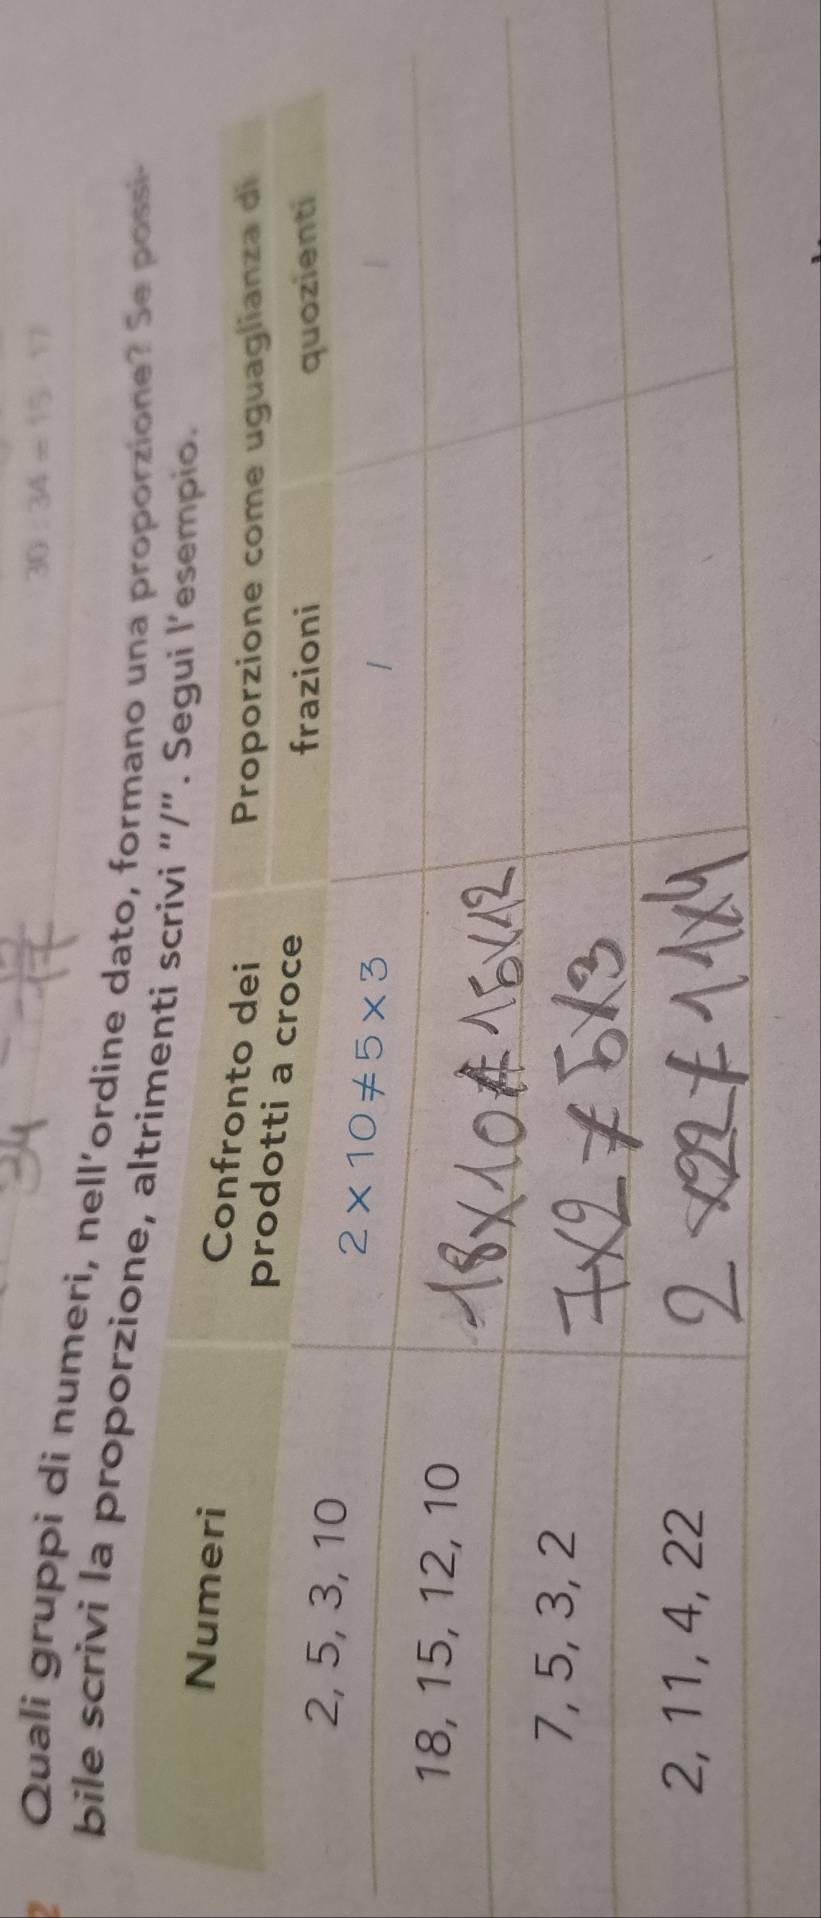 30 : 34 = 15 : 17
34
17
2
Quali gruppi di numeri, nell'ordine dato, formano una proporzione? Se possi-
bile scrivi la proporzione, altrimenti scrivi "/". Segui l'esempio.
Numeri
Confronto dei
prodotti a croce
Proporzione come uguaglianza di
frazioni
quozienti
2, 5, 3, 10
2 × 10 ≠ 5 × 3
/
/
18, 15, 12, 10
18x10≠15x12
7, 5, 3, 2
7x2≠5x3
2, 11, 4, 22
2x22≠11x4